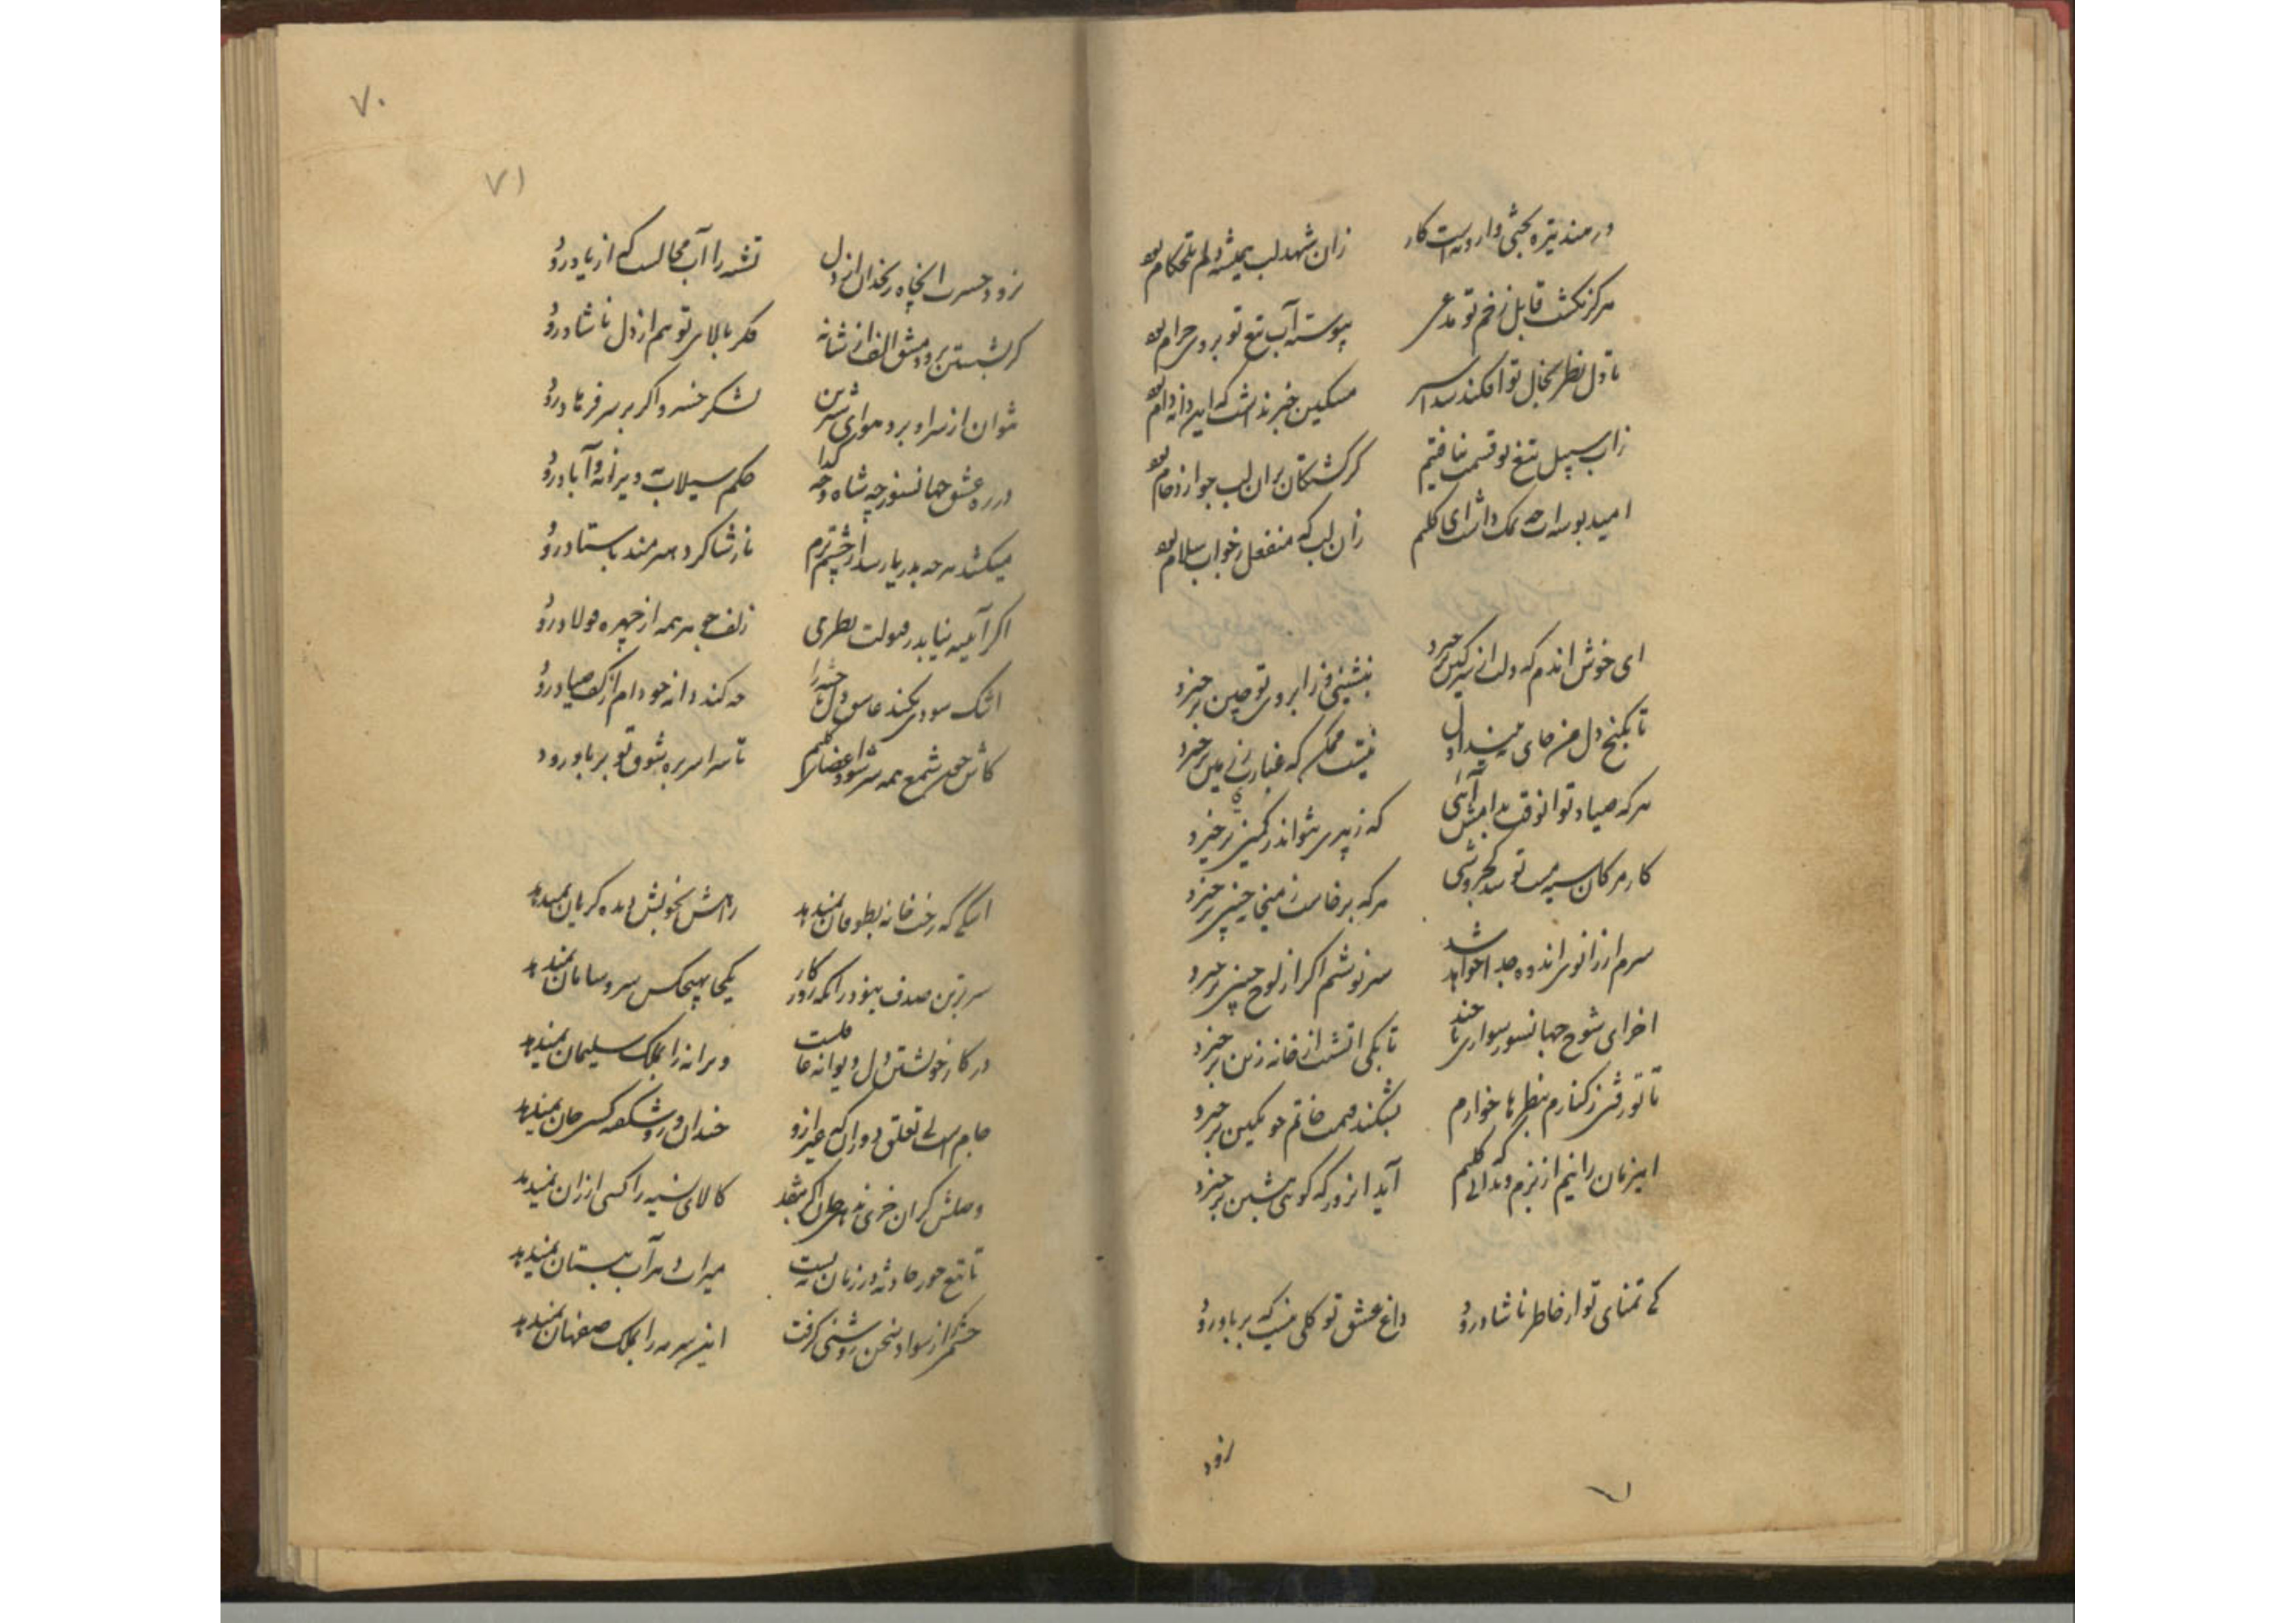 در هند تیره بختی وارونه است کار
زان شهد لب همیشه دلم تلخکام بود
هرگز نکشت قابل زخم تو مدعی
پیوسته آب تیغ تو بر وی حرام بود
تا دل نظر بخال تو افکند شد اسیر
مسکین خبر نداشت که این دانه دام بود
زاب سبیل تیغ تو قسمت نیافتیم
کر کشتکان بران لب جو ازدحام بود
امید بوسه ات چه نمک داشت ای کلیم
زان لب که منفعل ز جواب سلام بود
ای خوش اندم که دلت از سر کین برخیزد
بنشینی و ز ابروی تو چین برخیزد
تا بکنج دل من جای
نیست ممکن که غباری ز زمین برخیزد
هر که صیاد تو
که ز پیری نتواند ز کمین برخیزد
کار مژکان سیه مست تو شد
هر که برخاست ز میخانه چنین برخیزد
سرم از زانوی اندوه جدا خواهد شد
سرنوشتم اکر از لوح جبین برخیزد
اخر ای شوخ جهانسوز سواری تا چند
تا بکی اتشت از خانه زین برخیزد
تا تو رفتی ز کنارم بنظرها خوارم
بشکند قیمت خاتم چو نکین برخیزد
این زمان رانیم از بزم و ندانی که کلیم
آید انروز که کوئی بنشین برخیزد
کی تمنای تو از خاطر ناشاد رود
داغ عشق تو کلی نیست که بر باد رود
نرود
۷۰
۷۱
نرود حسرت آن چاه زنخدان از دل
تشنه را آب محالست که از یاد رود
کر بشستن برود مشق الف از شانه
فکر بالای تو هم از دل ناشاد رود
نتوان از سر او برد هوای شیرین
لشکر خسرو اکر بر سر فرهاد رود
در ره عشق جهانسوز چه شاه و چه کدا
حکم سیلاب بویرانه و آباد رود
میکشد هر چه بدریا رسد از چشم ترم
ناز شاکرد هنرمند باستاد رود
اکر آیینه نیابد ز قبولت نظری
زلف جوهر همه از چهره فولاد رود
اشک سودی نکند عاشق دل باخته را
چه کند دانه چو دام از کف صیاد رود
کاش چون شمع همه سر شود اعضای کلیم
تا سراسر بره شوق تو بر باد رود
اشکی که رخت خانه بطوفان نمیدهد
راهش بخویش دیده کریان نمیدهد
سر زین صدف ببود درانکه روزکار
یکجا بهیچکس سر و سامان نمیدهد
در کار خویشتن دل دیوانه عاقلست
ویرانه را بملک سلیمان نمیدهد
جام است بی تعلق دوران که غیر ازو
خندان و رو شکفته کسی جان نمیدهد
وصلش کران خری نه بجان اکر بنقد
کالای نسیه را کسی ارزان نمیدهد
تا تیغ جور حادثه در زمان نیست
میراث دهر آب ببستان نمیدهد
چشمم از سواد سخن روشنی کرفت
این سرمه را بملک صفاهان نمیدهد